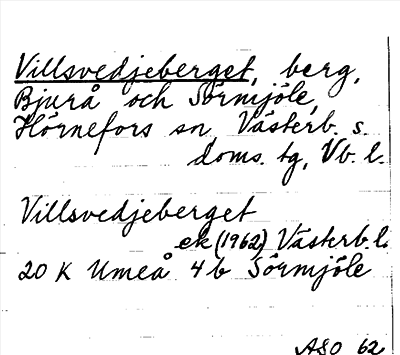 Villsvedjeberget, berg,
Bjurå och Sörmjöle,
Hörnefors sn, Västerb. s.
doms. tg, Vb. l.
Villsvedjeberget
ek (1962) Västerb. l.
20 K Umeå 4 b Sörmjöle
ASO 62